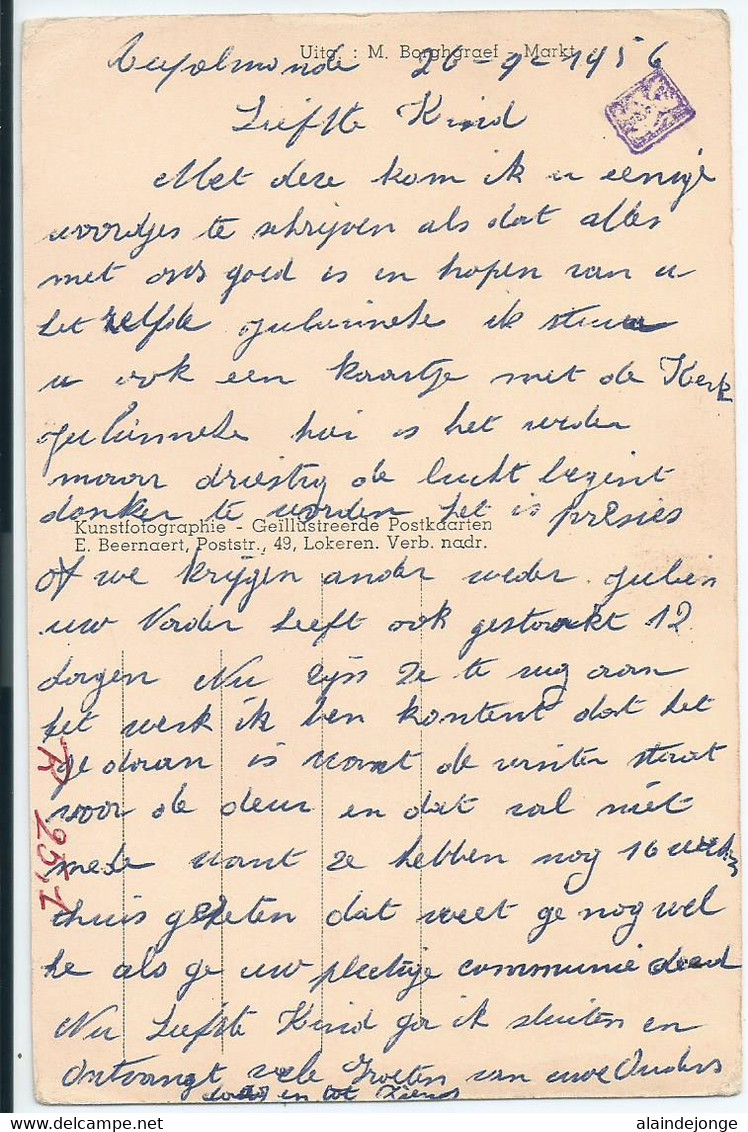 Uitg. : M. Borghgraef - Markt
Rupelmonde 26-9-1956
Liefste Kind
Met deze kom ik u eenige
woordjes te schrijven als dat alles
met ons goed is en hopen van u
het zelfde ik stuur
u ook een kaartje met de Kerk
hier is het weder
maar driestig de lucht begint
donker te worden het is presies
Kunstfotographie - Geïllustreerde Postkaarten
E. Beernaert, Poststr., 49, Lokeren. Verb. nadr.
of we krijgen ander weder. Julien
uw Vader heeft ook gestaakt 12
dagen Nu zijn ze te rug aan
het werk ik ben kontent dat het
gedaan is want de winter staat
voor de deur en dat val niet
mede want ze hebben nog 16 weken
thuis gezeten dat weet ge nog wel
he als ge uw plechtige communie deed
Nu Liefste Kind ga ik sluiten en
Ontvangt vele Groeten van uwe Ouders
en tot Ziens
R 25,1
alaindejonge